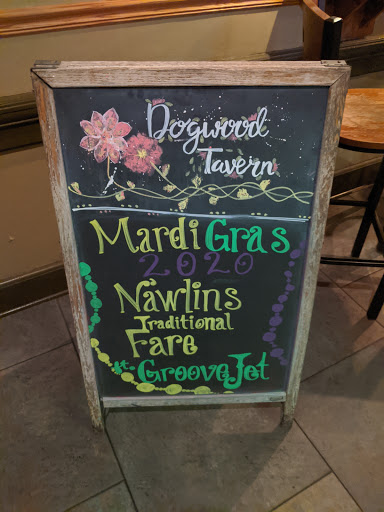 Dogwood
Tavern
Mardi Gras
2020
Nawlins
Traditional
Fare
ft. GrooveJet